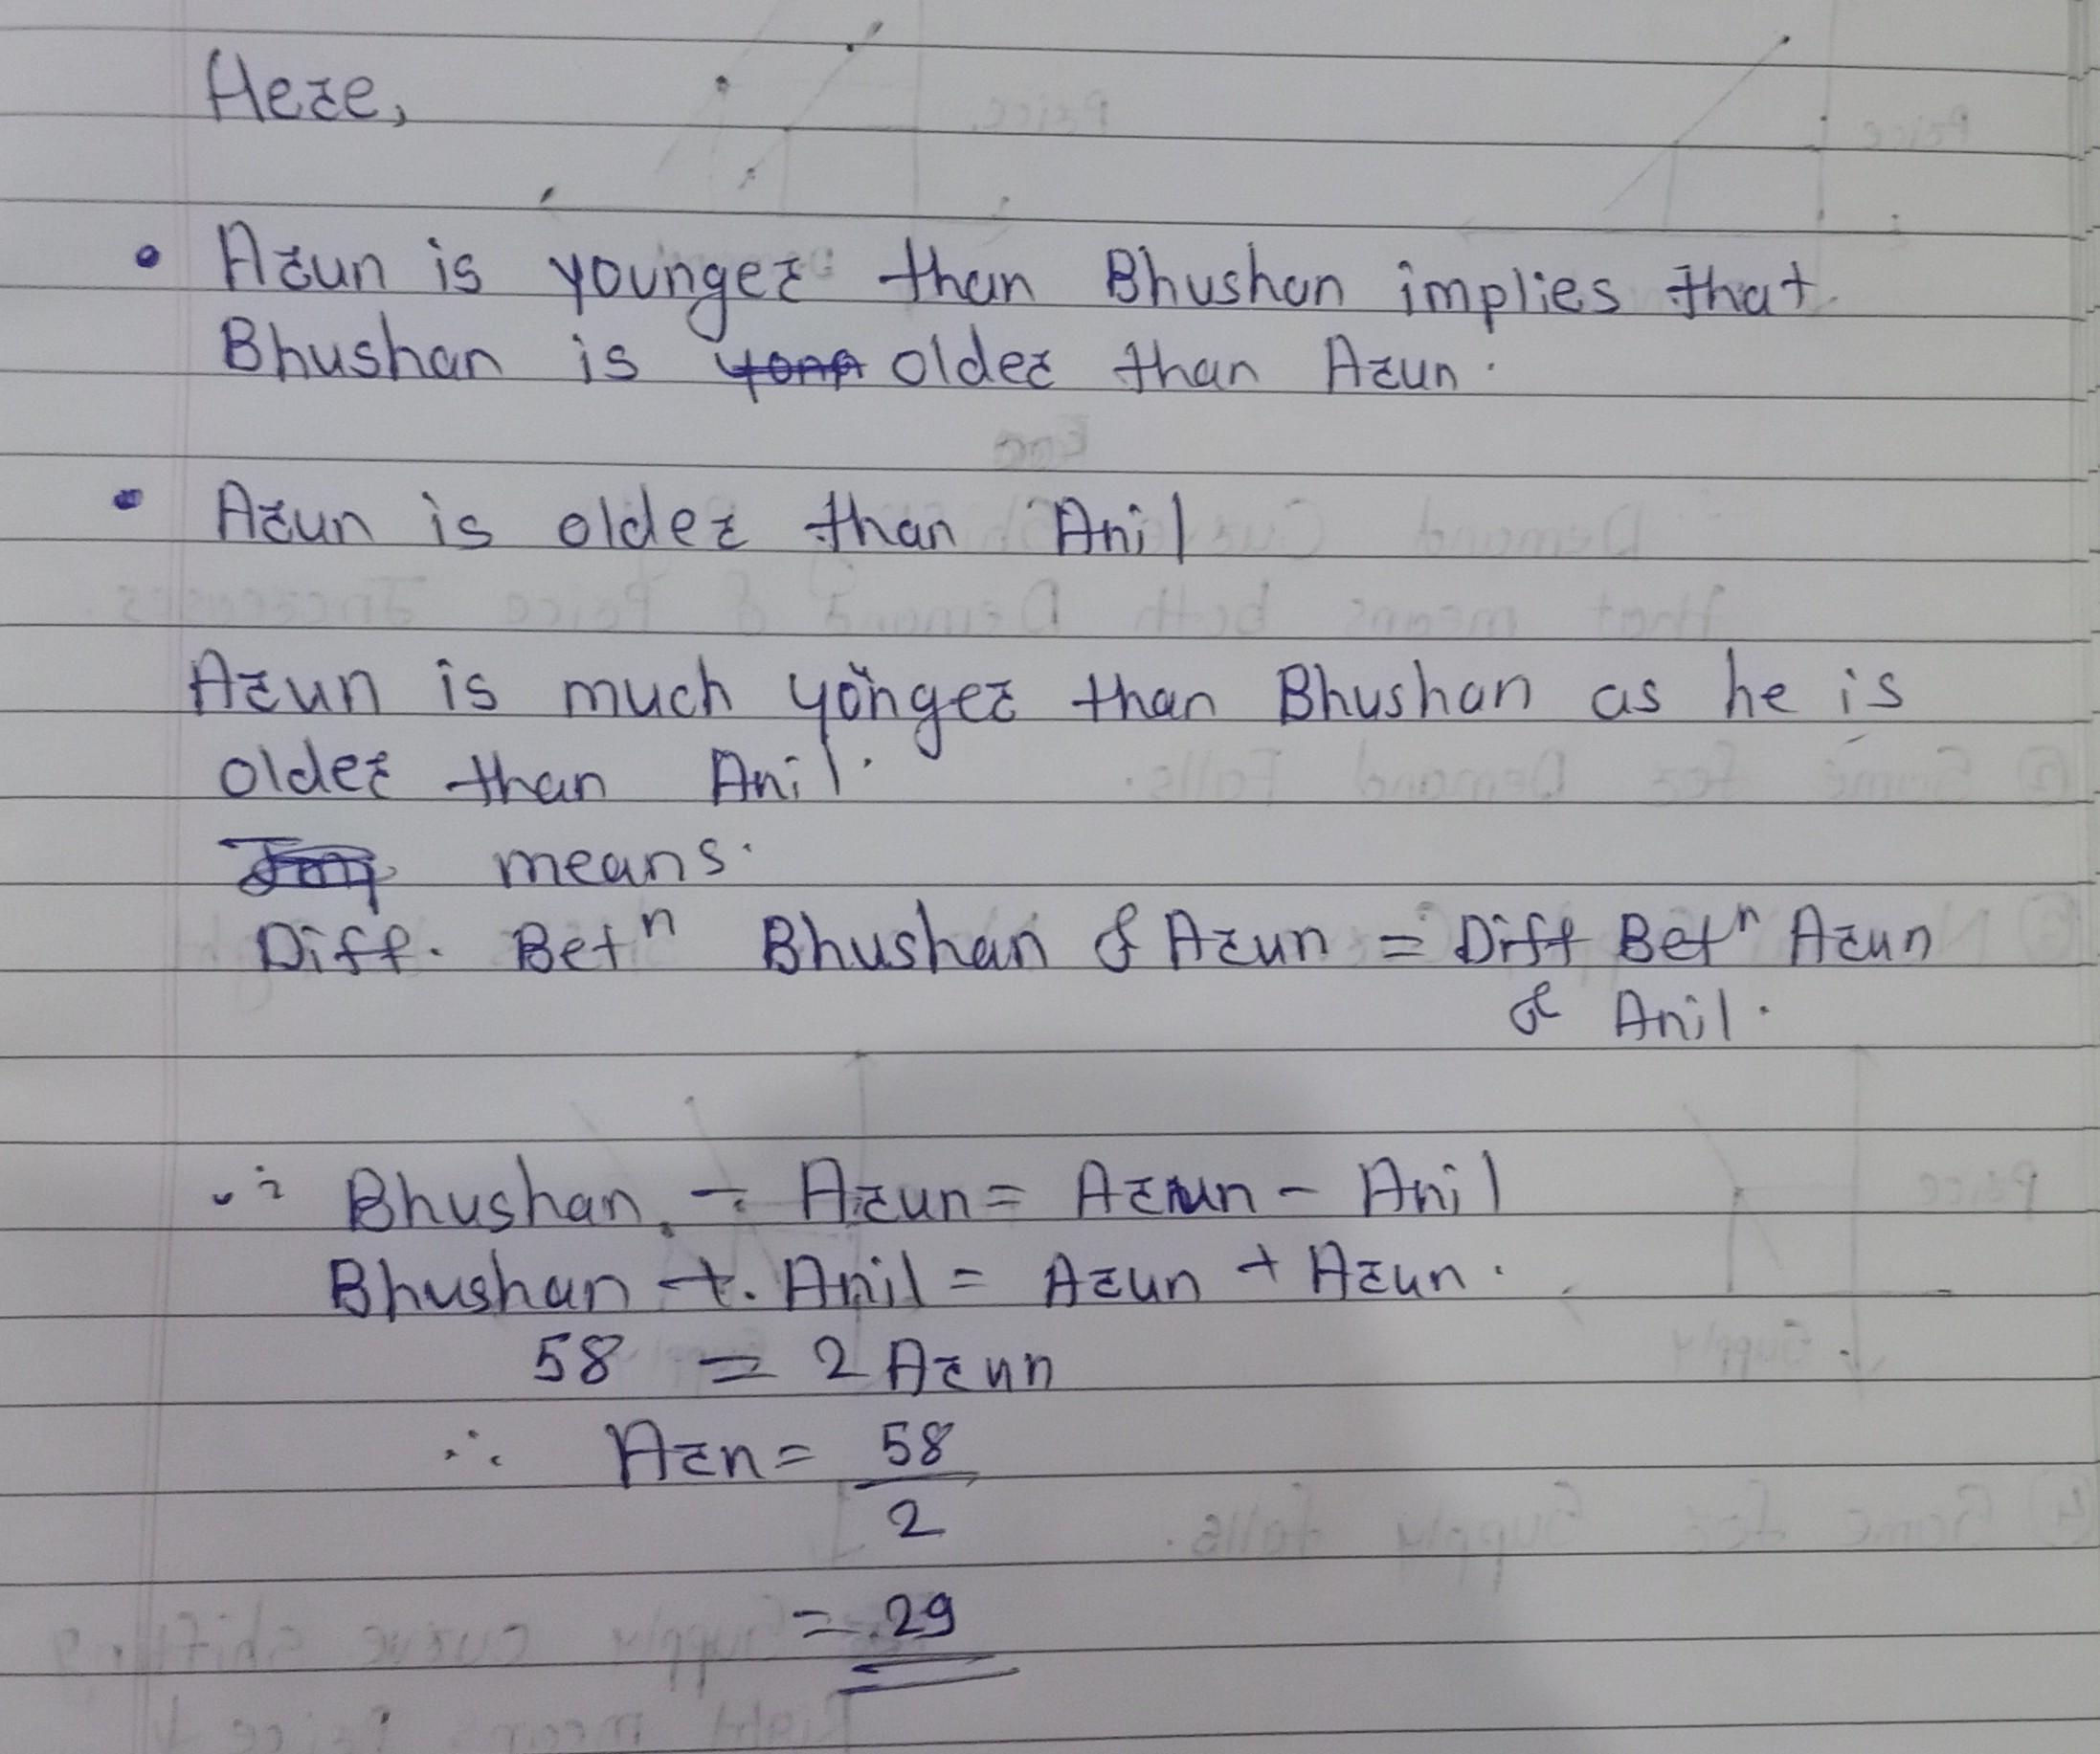 Here,
• Arun is younger than Bhushan implies that
Bhushan is older than Arun.
• Arun is older than Anil
Arun is much yonger than Bhushan as he is
older than Anil.
means.
Diff. Betn Bhushan & Arun = Diff Betn Arun
& Anil.
∴ Bhushan - Arun = Arun - Anil
Bhushan + Anil = Arun + Arun.
58 = 2 Arun
∴ Arn = 58
2
= 29